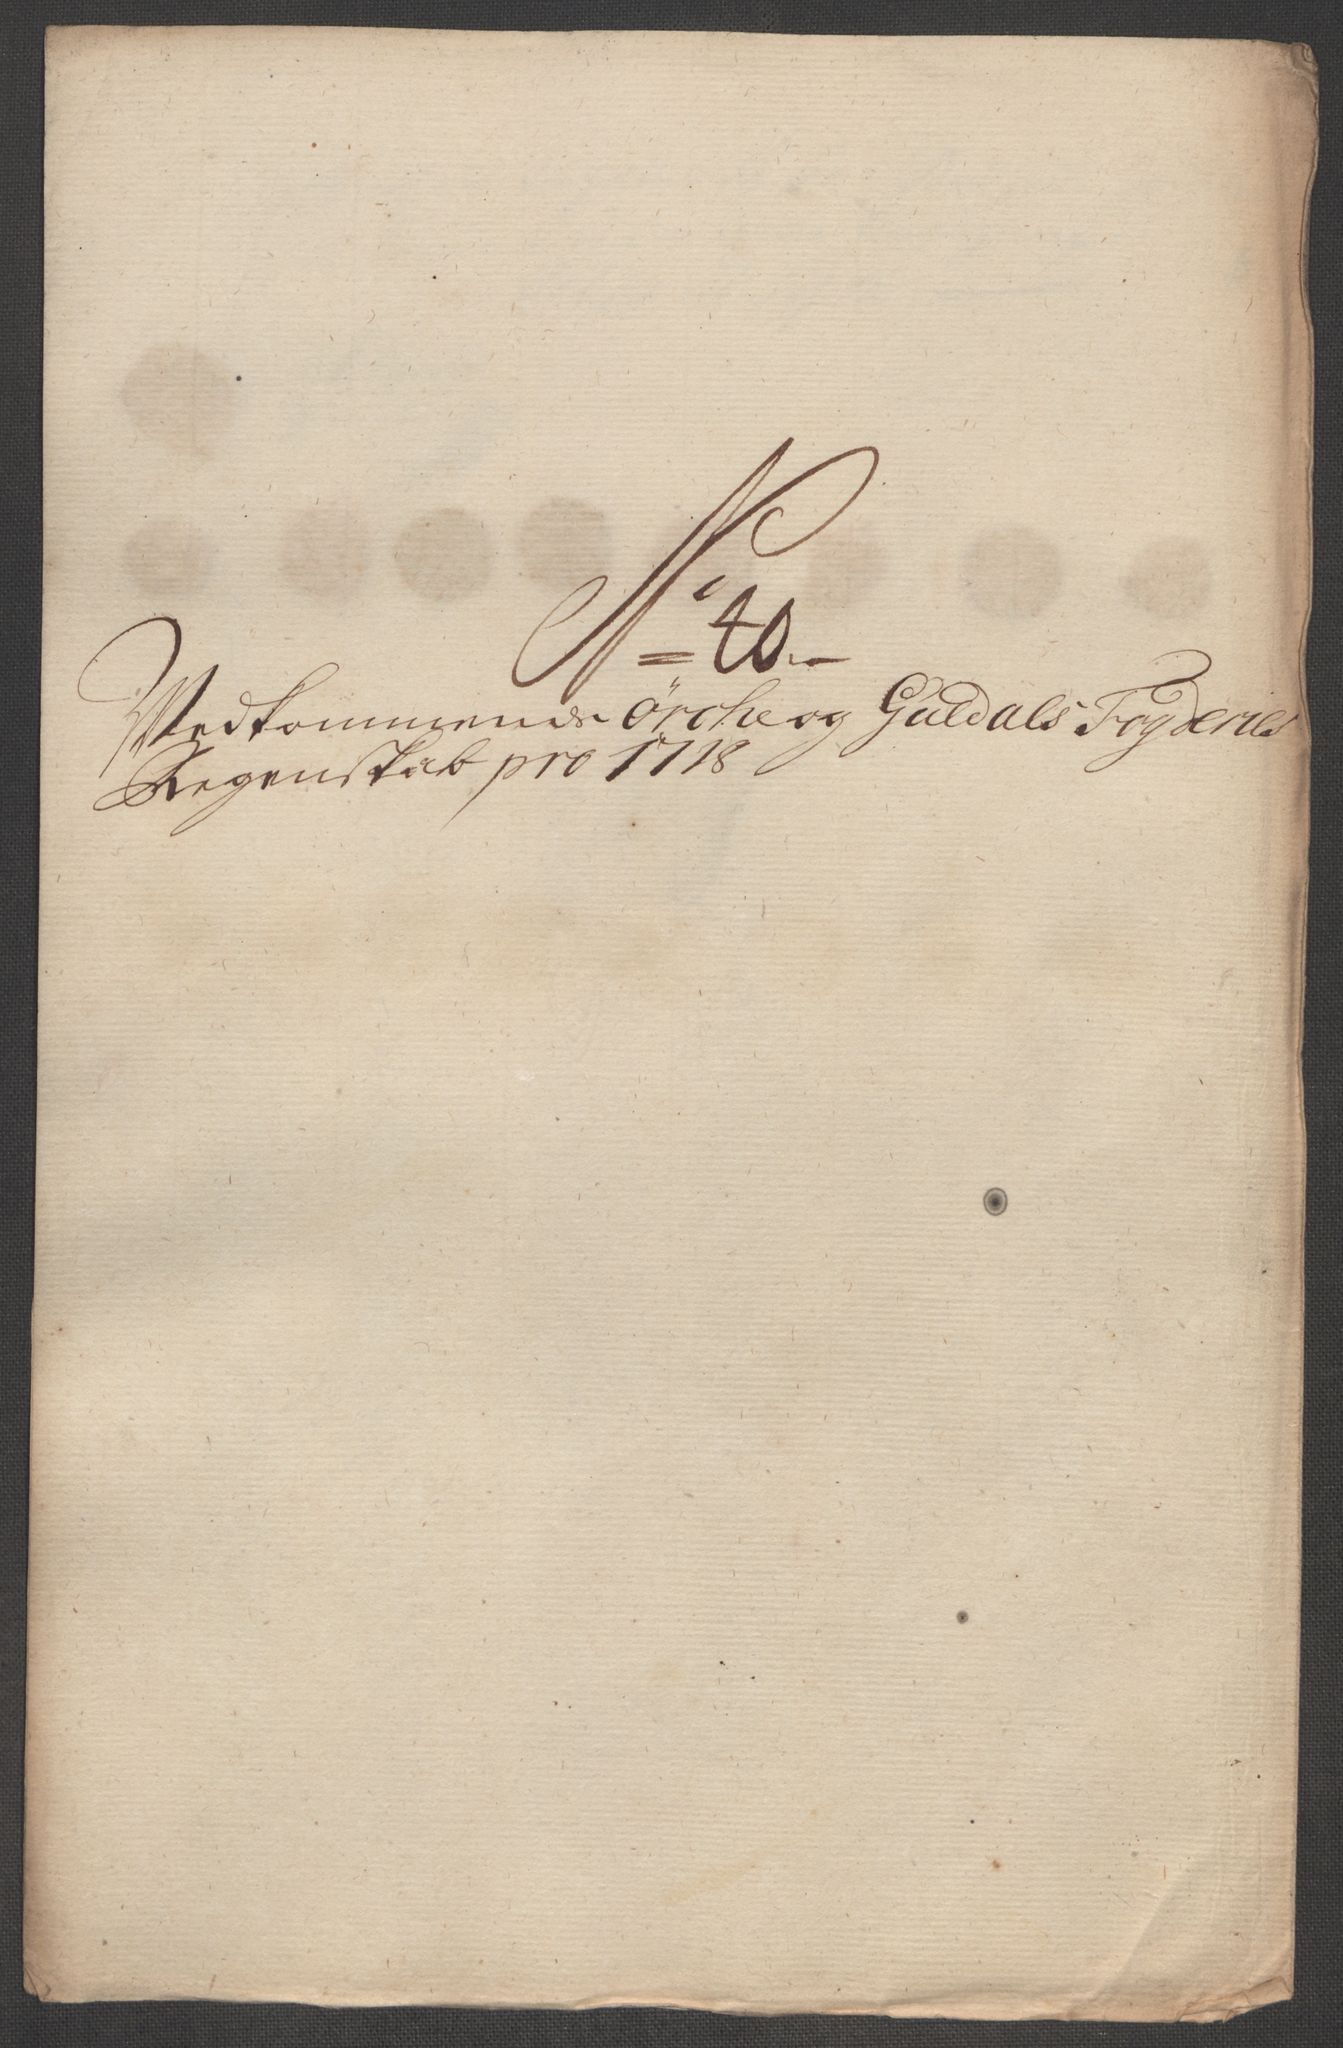 No 40.
Vedkommende örche og Guldals Fogderies
Regenskab pro 1718